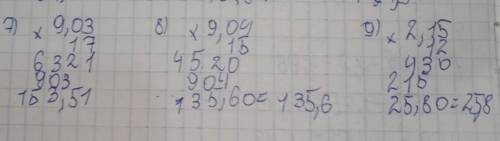 7) × 9,03
17
6321
903
153,51
8) × 9,04
15
4520
904
135,60 = 135,6
9) × 2,15
12
430
215
25,80 = 25,8